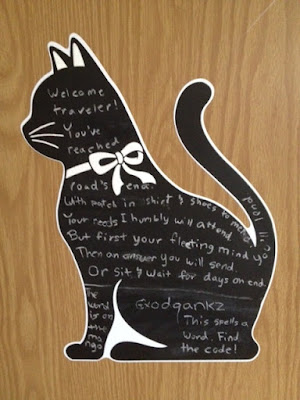 Welcome
traveler!
You've
reached
road's end.
With patch in shirt & shoes to mend
Your needs I humbly will attend
But first your fleeting mind
Then an answer you will send
Or Sit & Wait for days on end.
The
word
is on
the
mango
Godqankz
This spells a
word. Find
the code!